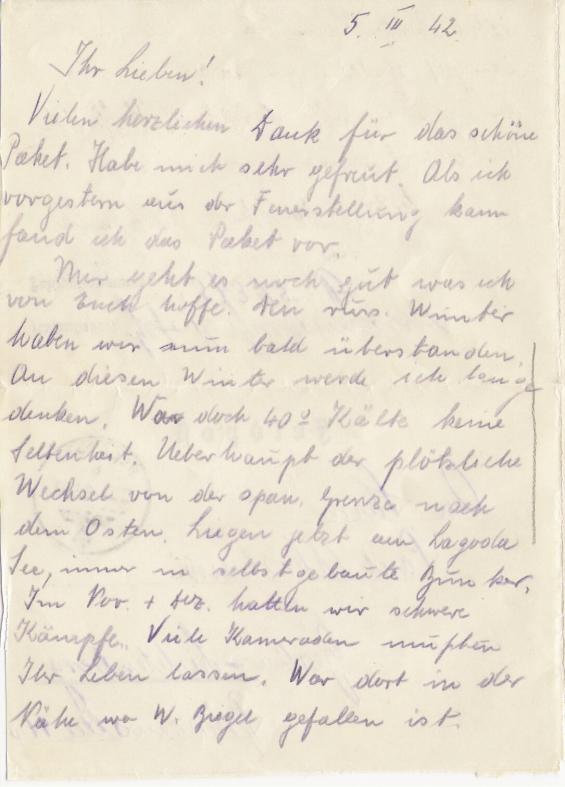 5. III 42
Ihr Lieben!
Vielen herzlichen Dank für das schöne
Paket. Habe mich sehr gefreut. Als ich
vorgestern aus der Feuerstellung kam
fand ich das Paket vor.
Mir geht es noch gut was ich
von Euch hoffe. Den russ. Winter
haben wir nun bald überstanden.
An diesen Winter werde ich lange
denken. War doch 40° Kälte keine
Seltenheit. Ueberhaupt der plötzliche
Wechsel von der span. Grenze nach
dem Osten. Liegen jetzt am Lagoda
See, immer in selbstgebaute Bunker.
Im Nov. + Dez. hatten wir schwere
Kämpfe. Viele Kameraden mußten
Ihr Leben lassen. War dort in der
Nähe wo W. Ziegel gefallen ist.